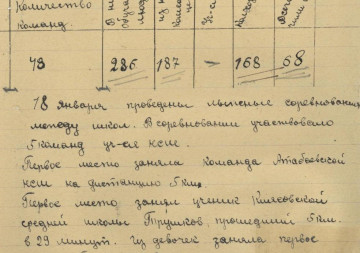 Количество
команд.
43 236 187 - 168 68
18 января проведены лыжные соревнования
между школ. В соревновании участвовало
5 команд уч-ся КСШ.
Первое место заняла команда Атабаевской
НСШ на дистанцию 5 клм.
Первое место занял ученик Киясовской
средней школы Трушков, прошедший 5 км.
в 29 минут. Из девочек заняла первое